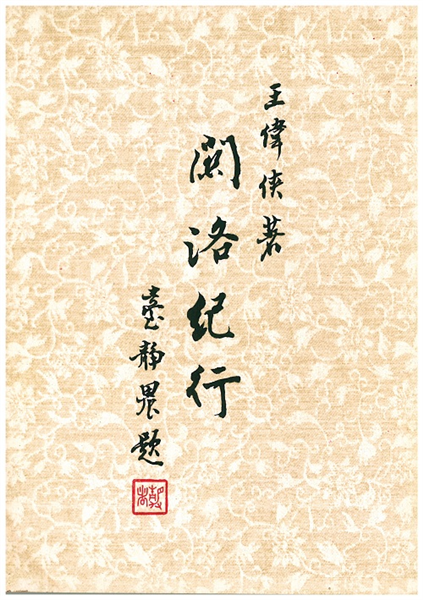 王偉俠著
關洛紀行
臺靜農題